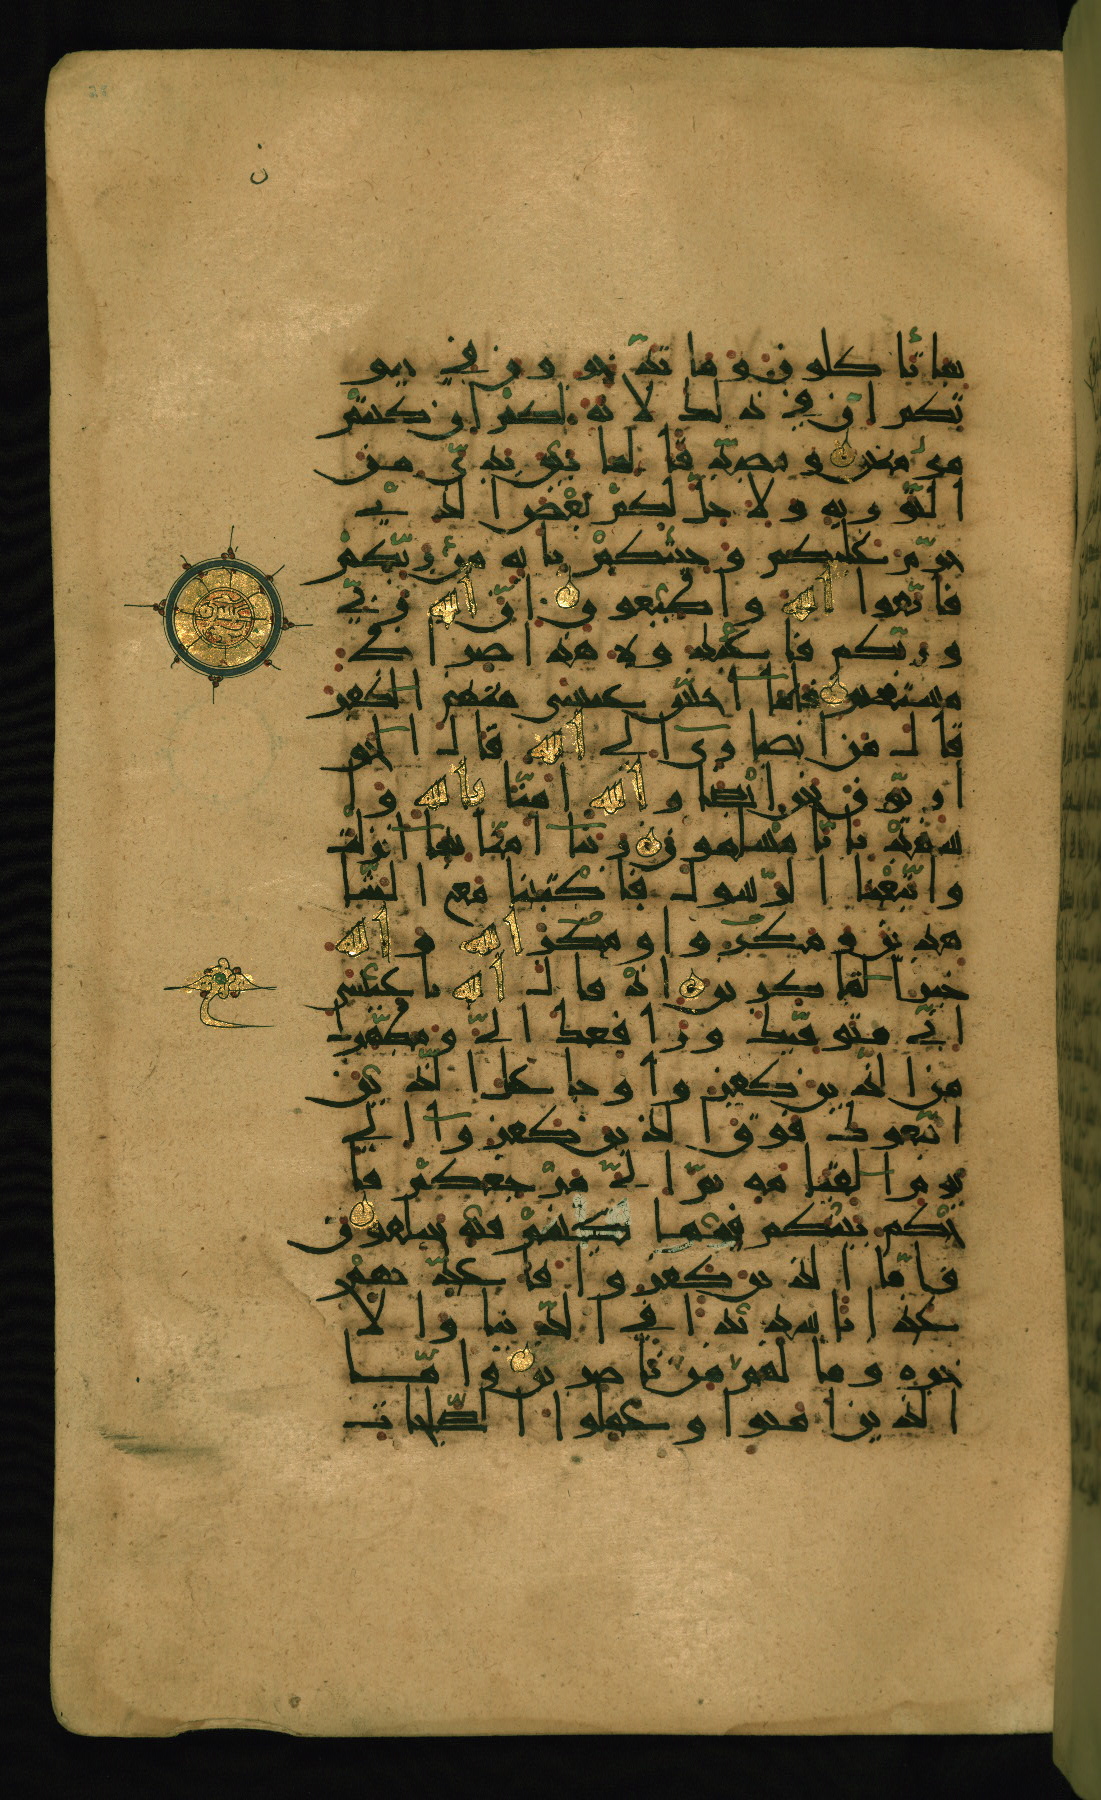 بما تأكلون وما تدخرون في بيو
تكم ان في ذلك لاية لكم ان كنتم
مؤمنين ومصدقا لما بين يدي من
التورية ولاحل لكم بعض الذي
حرم عليكم وجئتكم باية من ربكم
فاتقوا الله واطيعون ان الله ربي
وربكم فاعبدوه هذا صراط
مستقيم فلما احس عيسى منهم الكفر
قال من انصاري الى الله قال الحو
اريون نحن انصار الله امنا بالله وا
شهد بانا مسلمون ربنا امنا بما انزلت
واتبعنا الرسول فاكتبنا مع الشا
هدين ومكروا ومكر الله والله
خير الماكرين اذ قال الله يا عيسى
اني متوفيك ورافعك الي ومطهرك
من الذين كفروا وجاعل الذين
اتبعوك فوق الذين كفروا الى
يوم القيمة ثم الي مرجعكم فا
حكم بينكم فيما كنتم فيه تختلفون
فاما الذين كفروا فاعذبهم
عذابا شديدا في الدنيا والا
خرة وما لهم من ناصرين واما
الذين امنوا وعملوا الصالحات